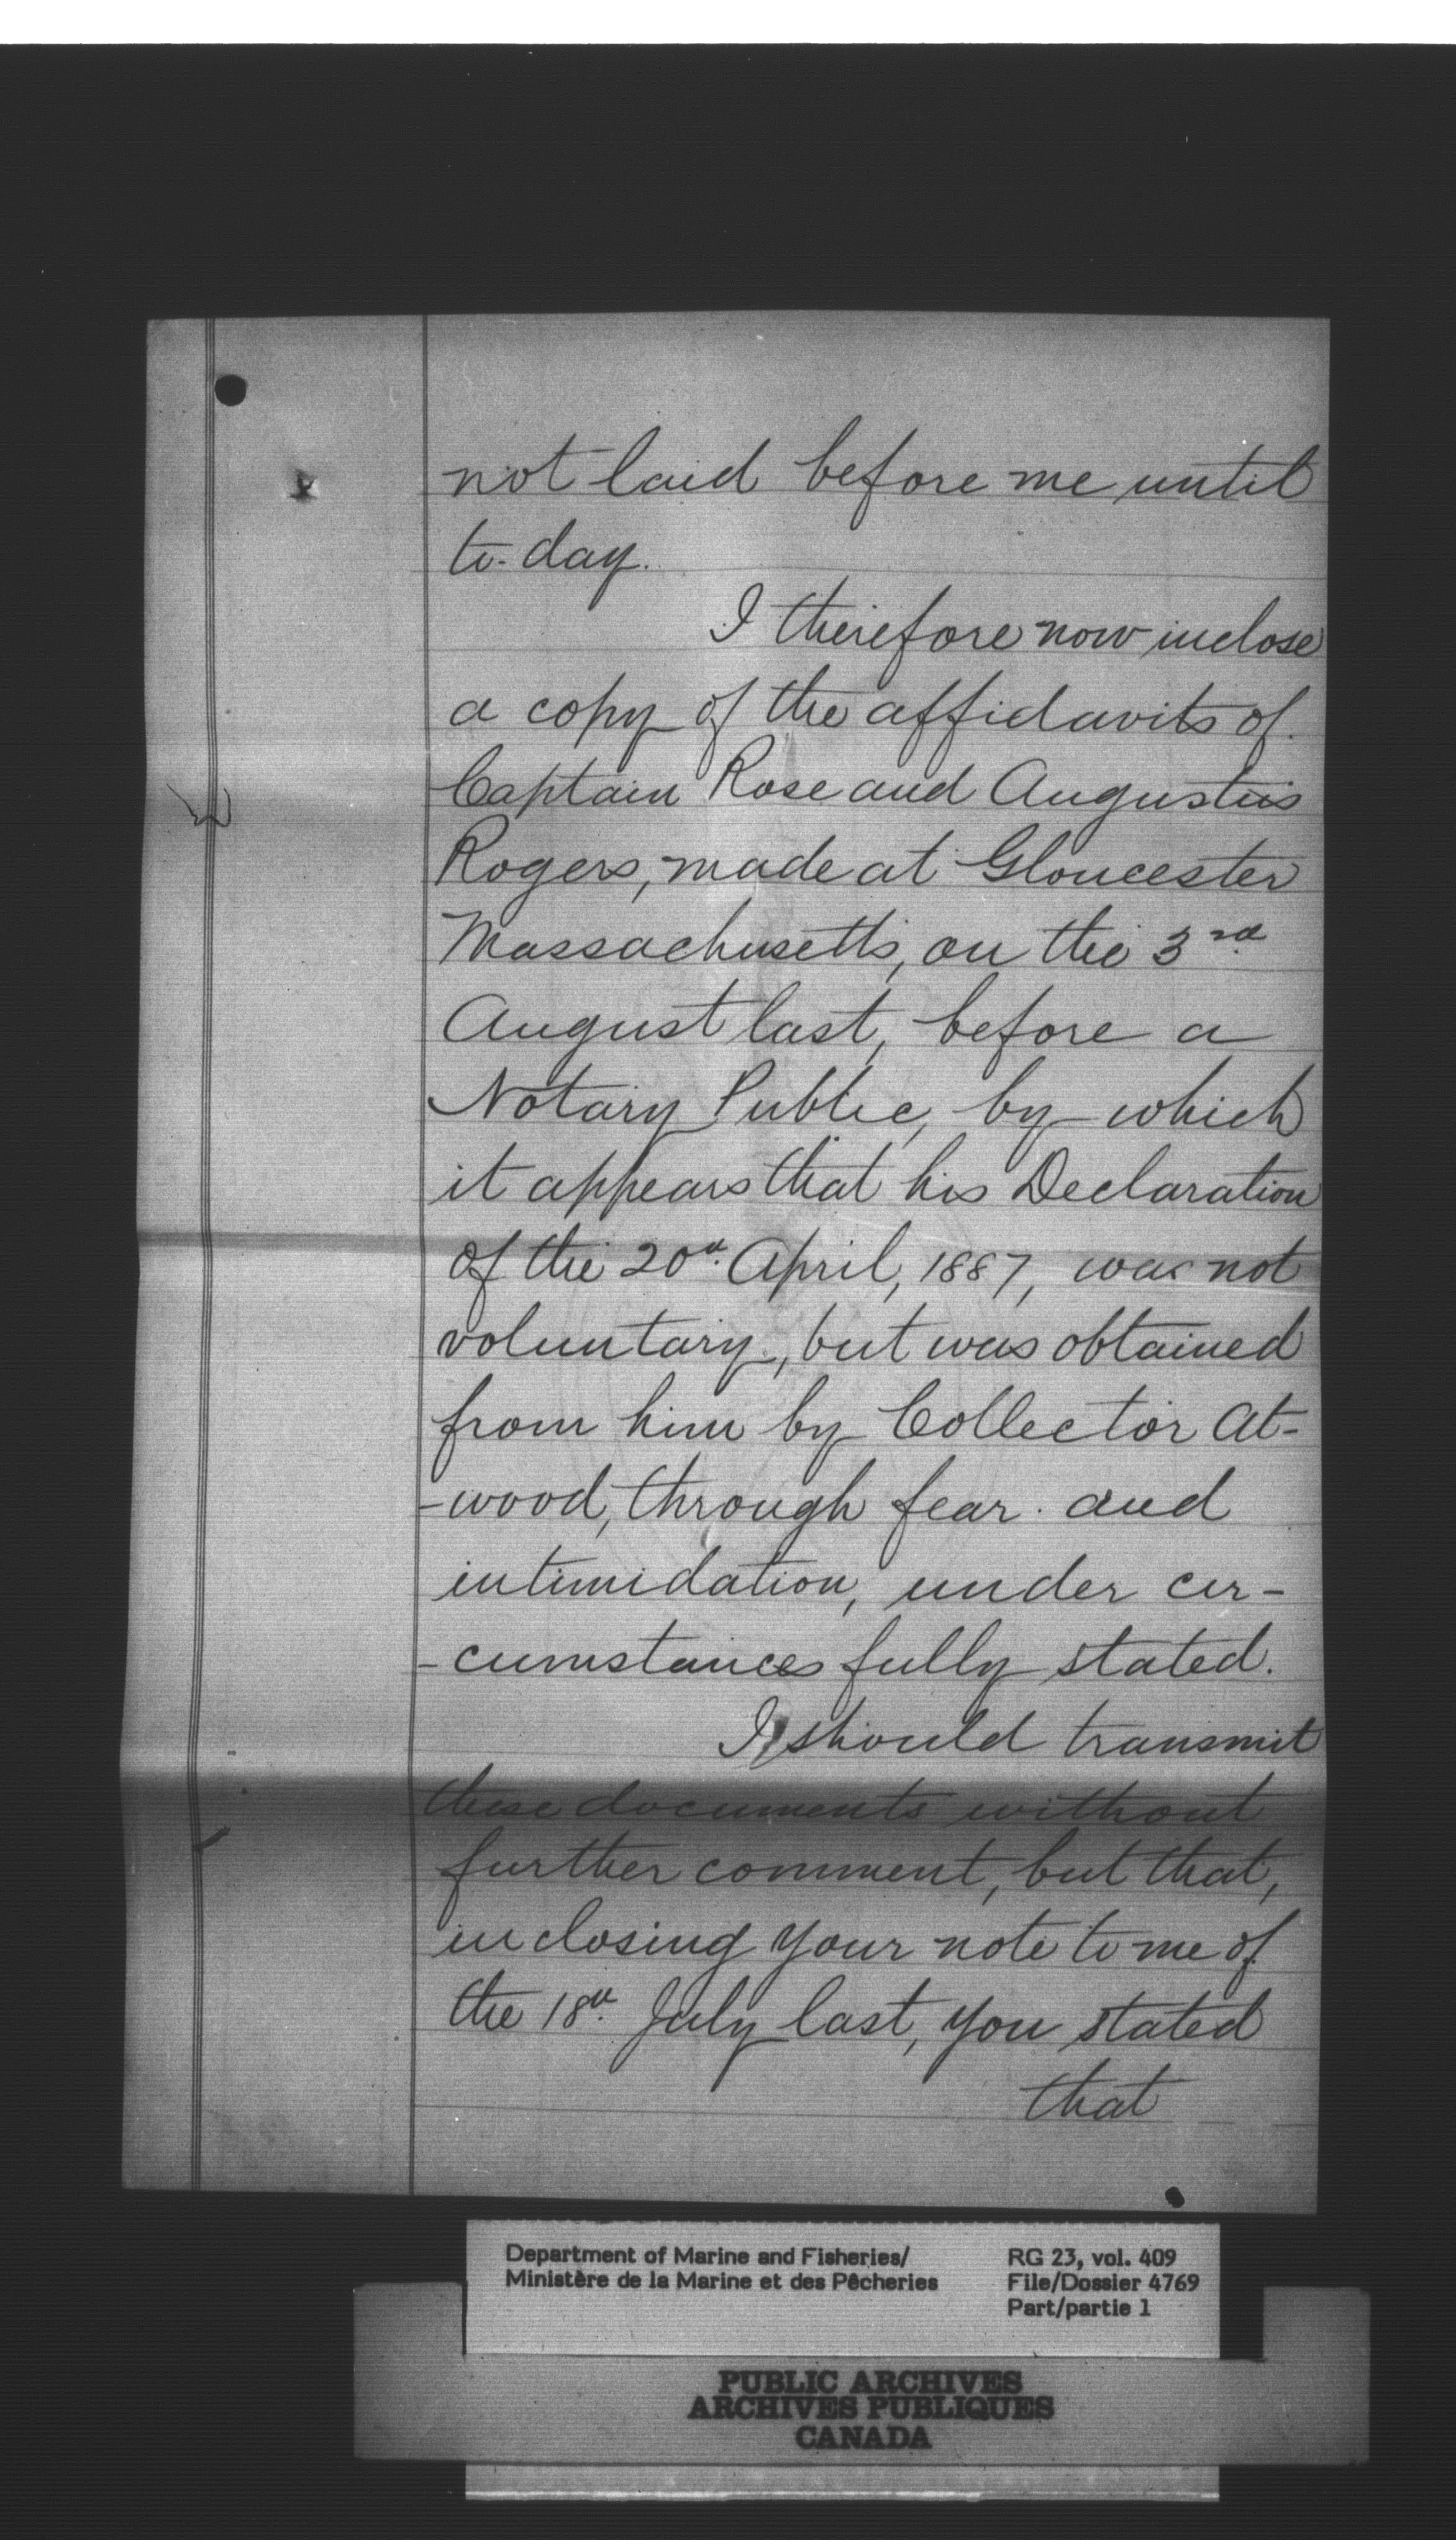 not laid before me until
to-day.
I therefore now inclose
a copy of the affidavits of
Captain Rose and Augustus
Rogers, made at Gloucester
Massachusetts, on the 3rd
August last, before a
Notary Public, by which
it appears that his Declaration
of the 20th April, 1887, was not
voluntary, but was obtained
from him by Collector At-
-wood, through fear and
intimidation, under cir-
-cumstances fully stated.
I should transmit
these documents without
further comment, but that,
in closing your note to me of
the 18th July last, you stated
that
Department of Marine and Fisheries/
Ministère de la Marine et des Pêcheries
RG 23, vol. 409
File/Dossier 4769
Part/partie 1
PUBLIC ARCHIVES
ARCHIVES PUBLIQUES
CANADA